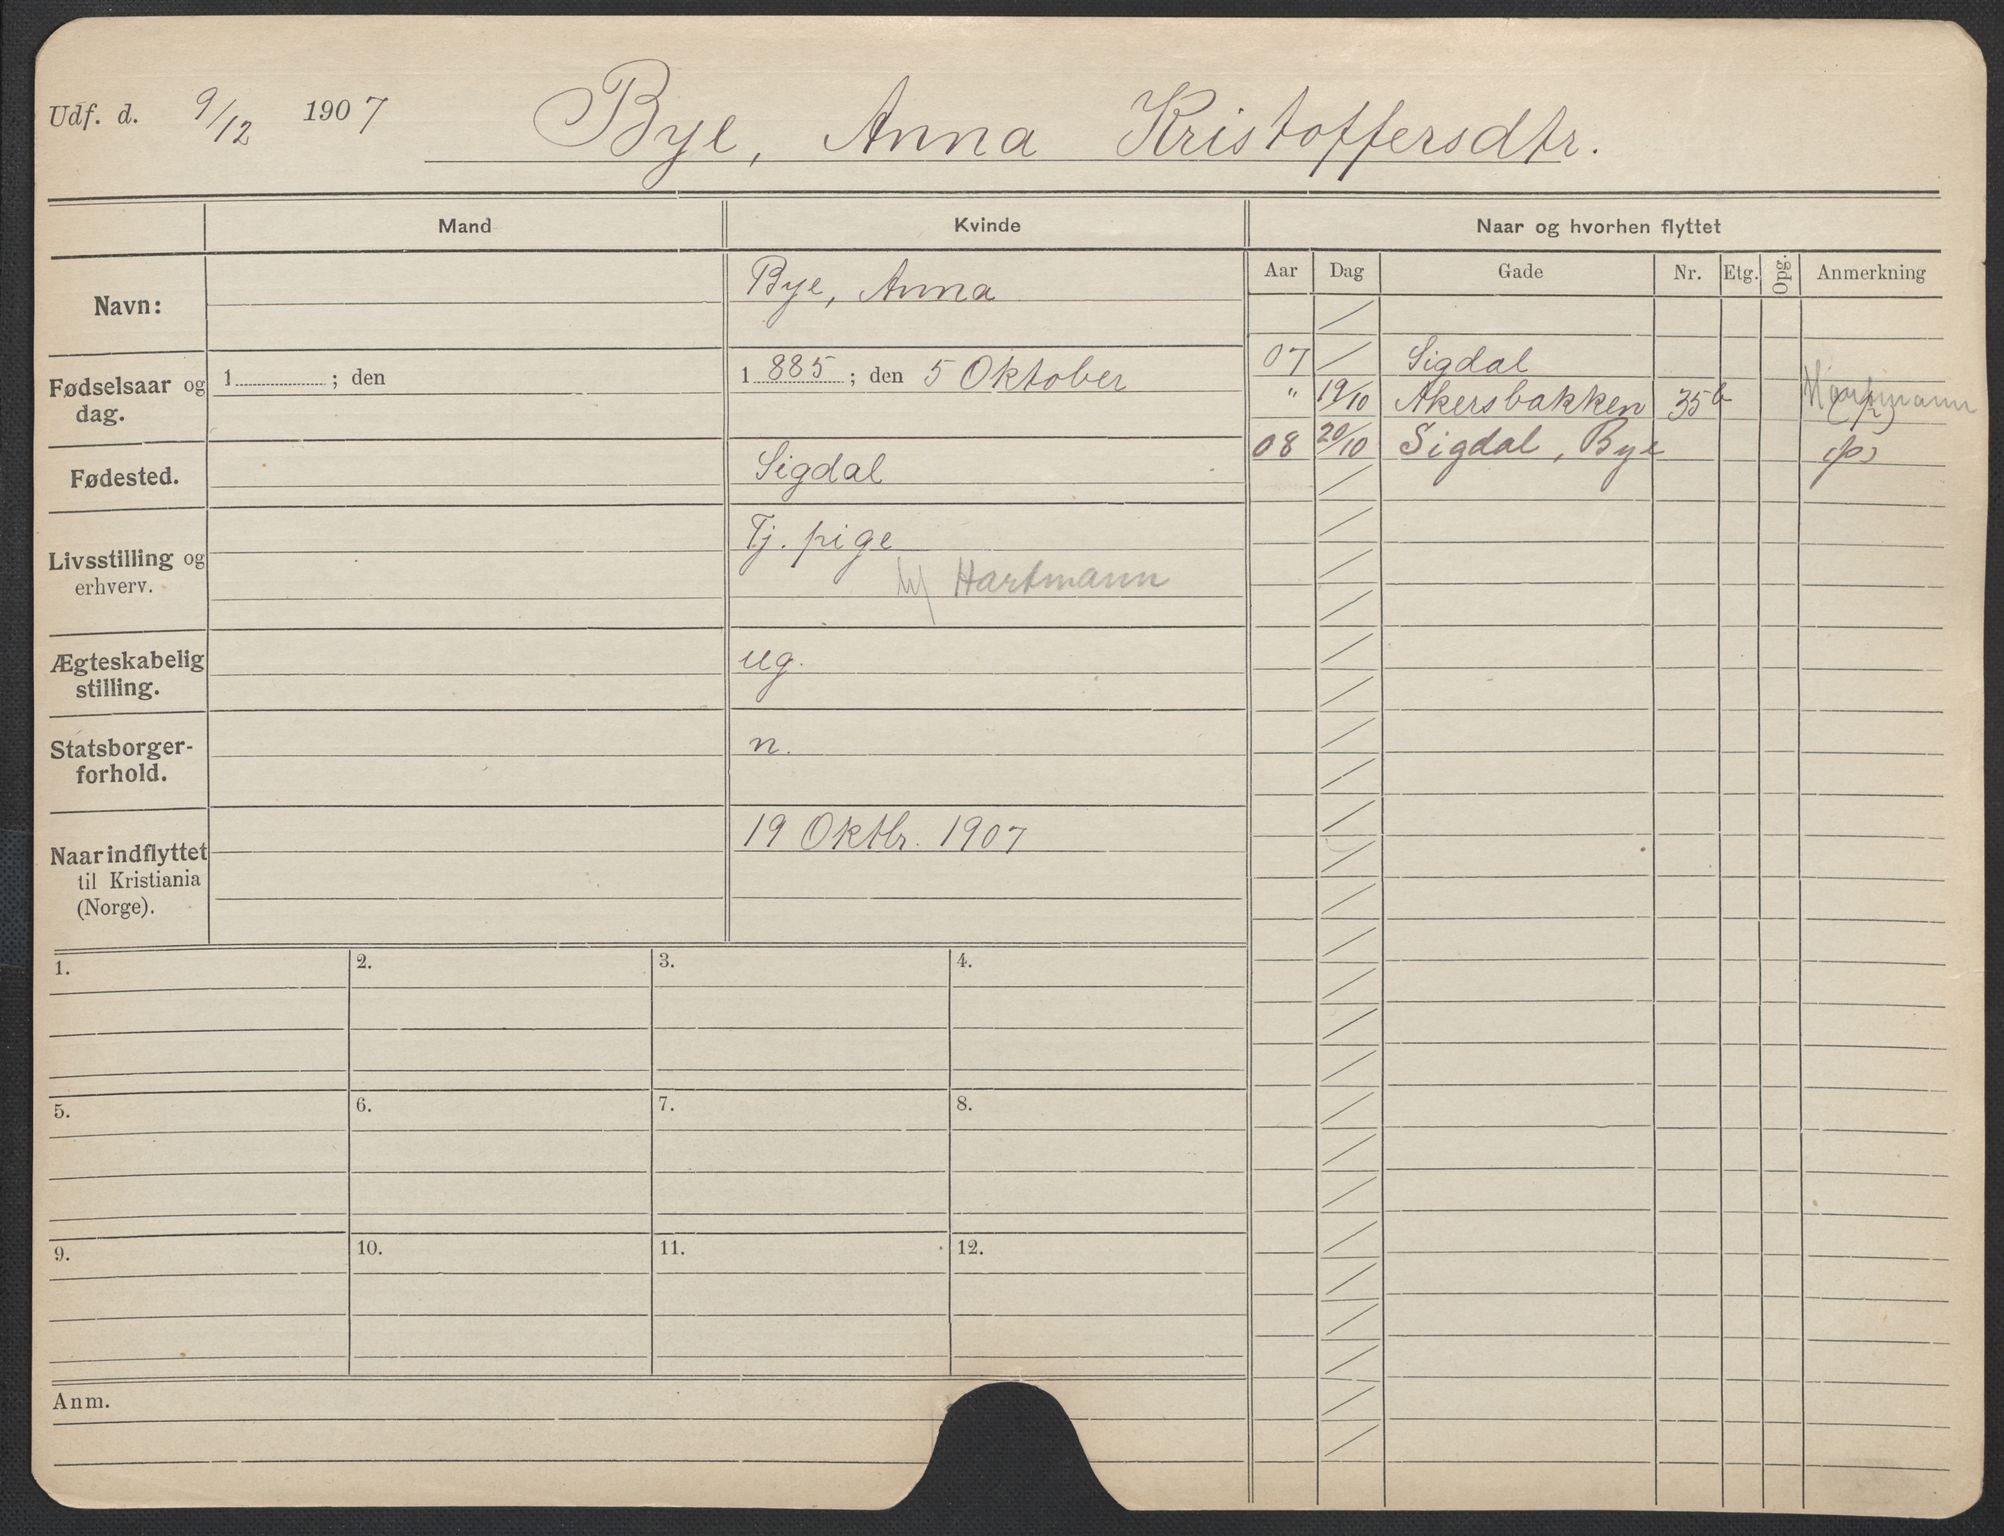 Udf. d. 9/12 1907 Bye, Anna Kristoffersdtr.
Mand Kvinde Naar og hvorhen flyttet
Aar Dag Gade Nr. Etg. Opg. Anmerkning
Navn: Bye, Anna
Fødselsaar og dag. 1 ; den 1 885 ; den 5 Oktober
Fødested. Sigdal
Livsstilling og erhverv. Tj. pige
h/ Hartmann
Ægteskabelig stilling. ug.
Statsborgerforhold. n.
Naar indflyttet til Kristiania (Norge). 19 Oktbr. 1907
07 Sigdal
" 19/10 Akersbakken 35b Hartmann (p)
08 20/10 Sigdal, Bye (p)
1. 2. 3. 4.
5. 6. 7. 8.
9. 10. 11. 12.
Anm.